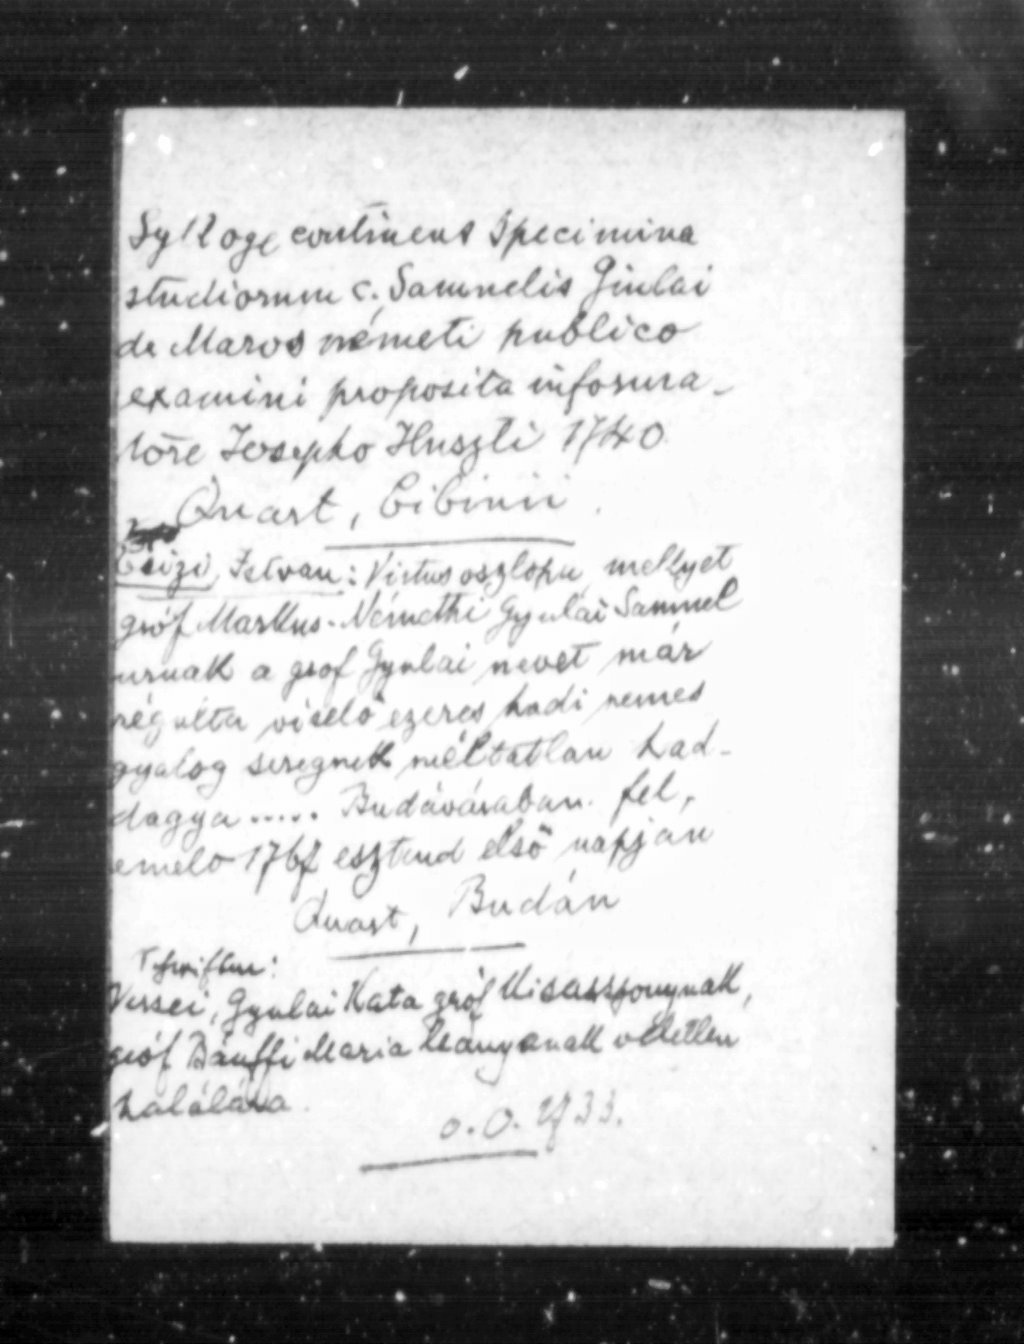 Sylloge continens Specimina
studiorum c. Samuelis Giulai
de Maros németi publico
examini proposita informa-
tore Josepho Huszti 1740
Quart, Cibinii.
Csizi, Istvan: Virtus oszlopa mellyet
gróf Markus-Némethi Gyulai Samuel
urnak a grof Gyulai nevet már
régulta viselő ezeres hadi nemes
gyalog seregnek méltatlan had-
dagya ..... Budávárában. fel,
emelo esztend első napján
Quart, Budán
Versei, Gyulai Kata gróf Kisasszonynak,
gróf Bánffi Maria leányanak véletlen
halálára.
o. O.